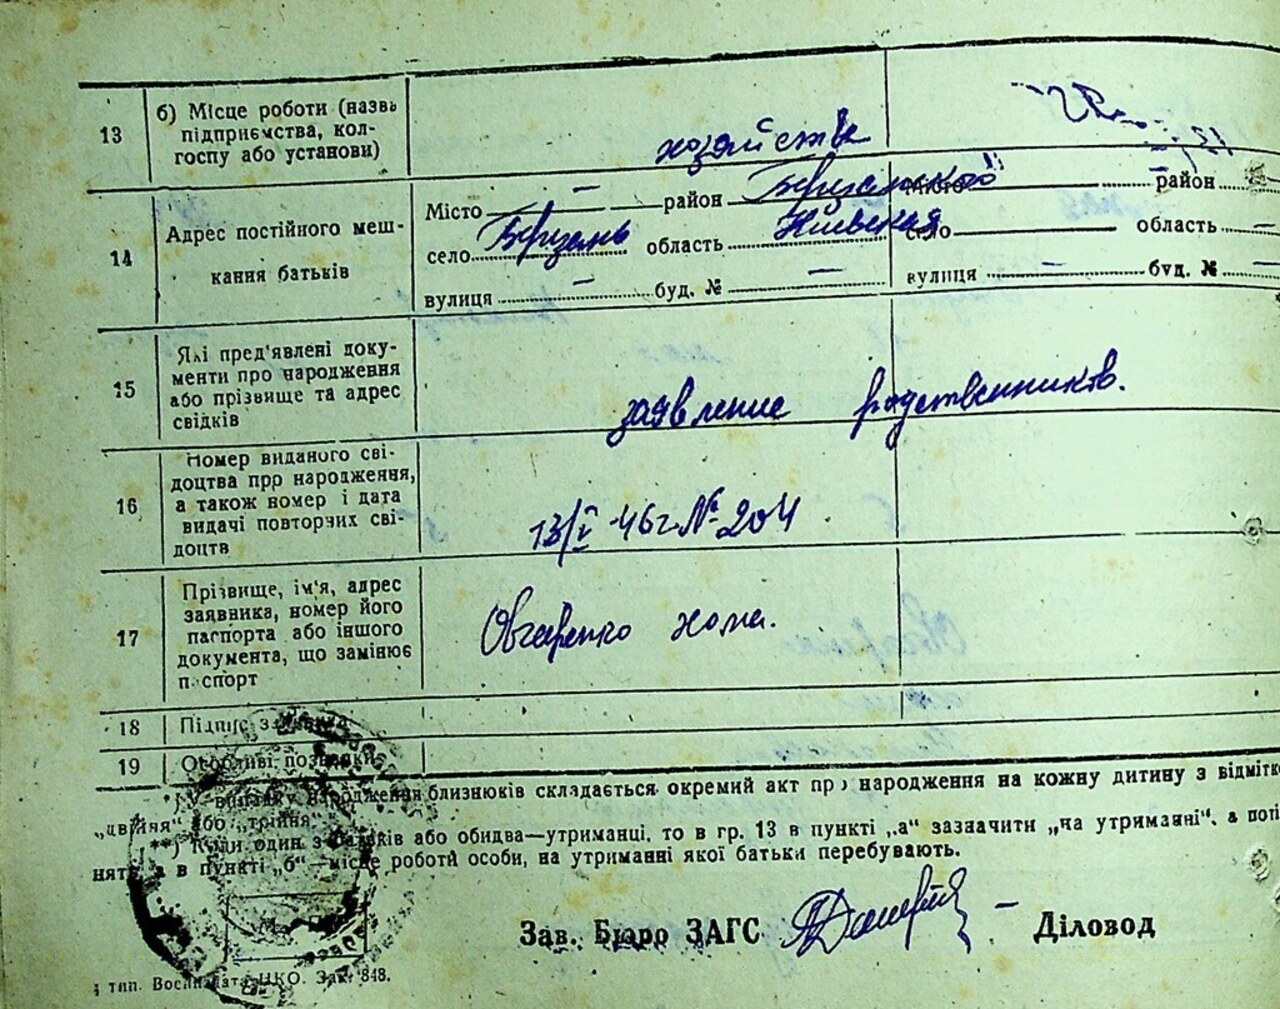 13
б) Місце роботи (назва
підприємства, кол-
госпу або установи)
хозяйстве
14
Адрес постійного меш-
кання батьків
Місто — район
село Березань область Киевская
вулиця — буд. № —
Місто — район
село область —
вулиця — буд. № —
15
Які пред'явлені доку-
менти про народження
або прізвище та адрес
свідків
заявление родственников.
16
Номер виданого сві-
доцтва прр народження,
а також номер і дата
видачі повторних сві-
доцтв
13/V-46г № 204
17
Прізвище, ім'я, адрес
заявника, номер його
паспорта або іншого
документа, що замінює
паспорт
Овчаренко Хома.
18
Підпис заявника
19
Особливі позначки
*) У випадку народження близнюків складається окремий акт про народження на кожну дитину з відмітк
„двійня“ або „трійня“
**) Коли один з батьків або обидва—утриманці, то в гр. 13 в пункті „а“ зазначити „на утриманні“, а
а в пункті „б“—місце роботи особи, на утриманні якої батьки перебувають.
Зав. Бюро ЗАГС — Діловод
тип. Зак. 848.